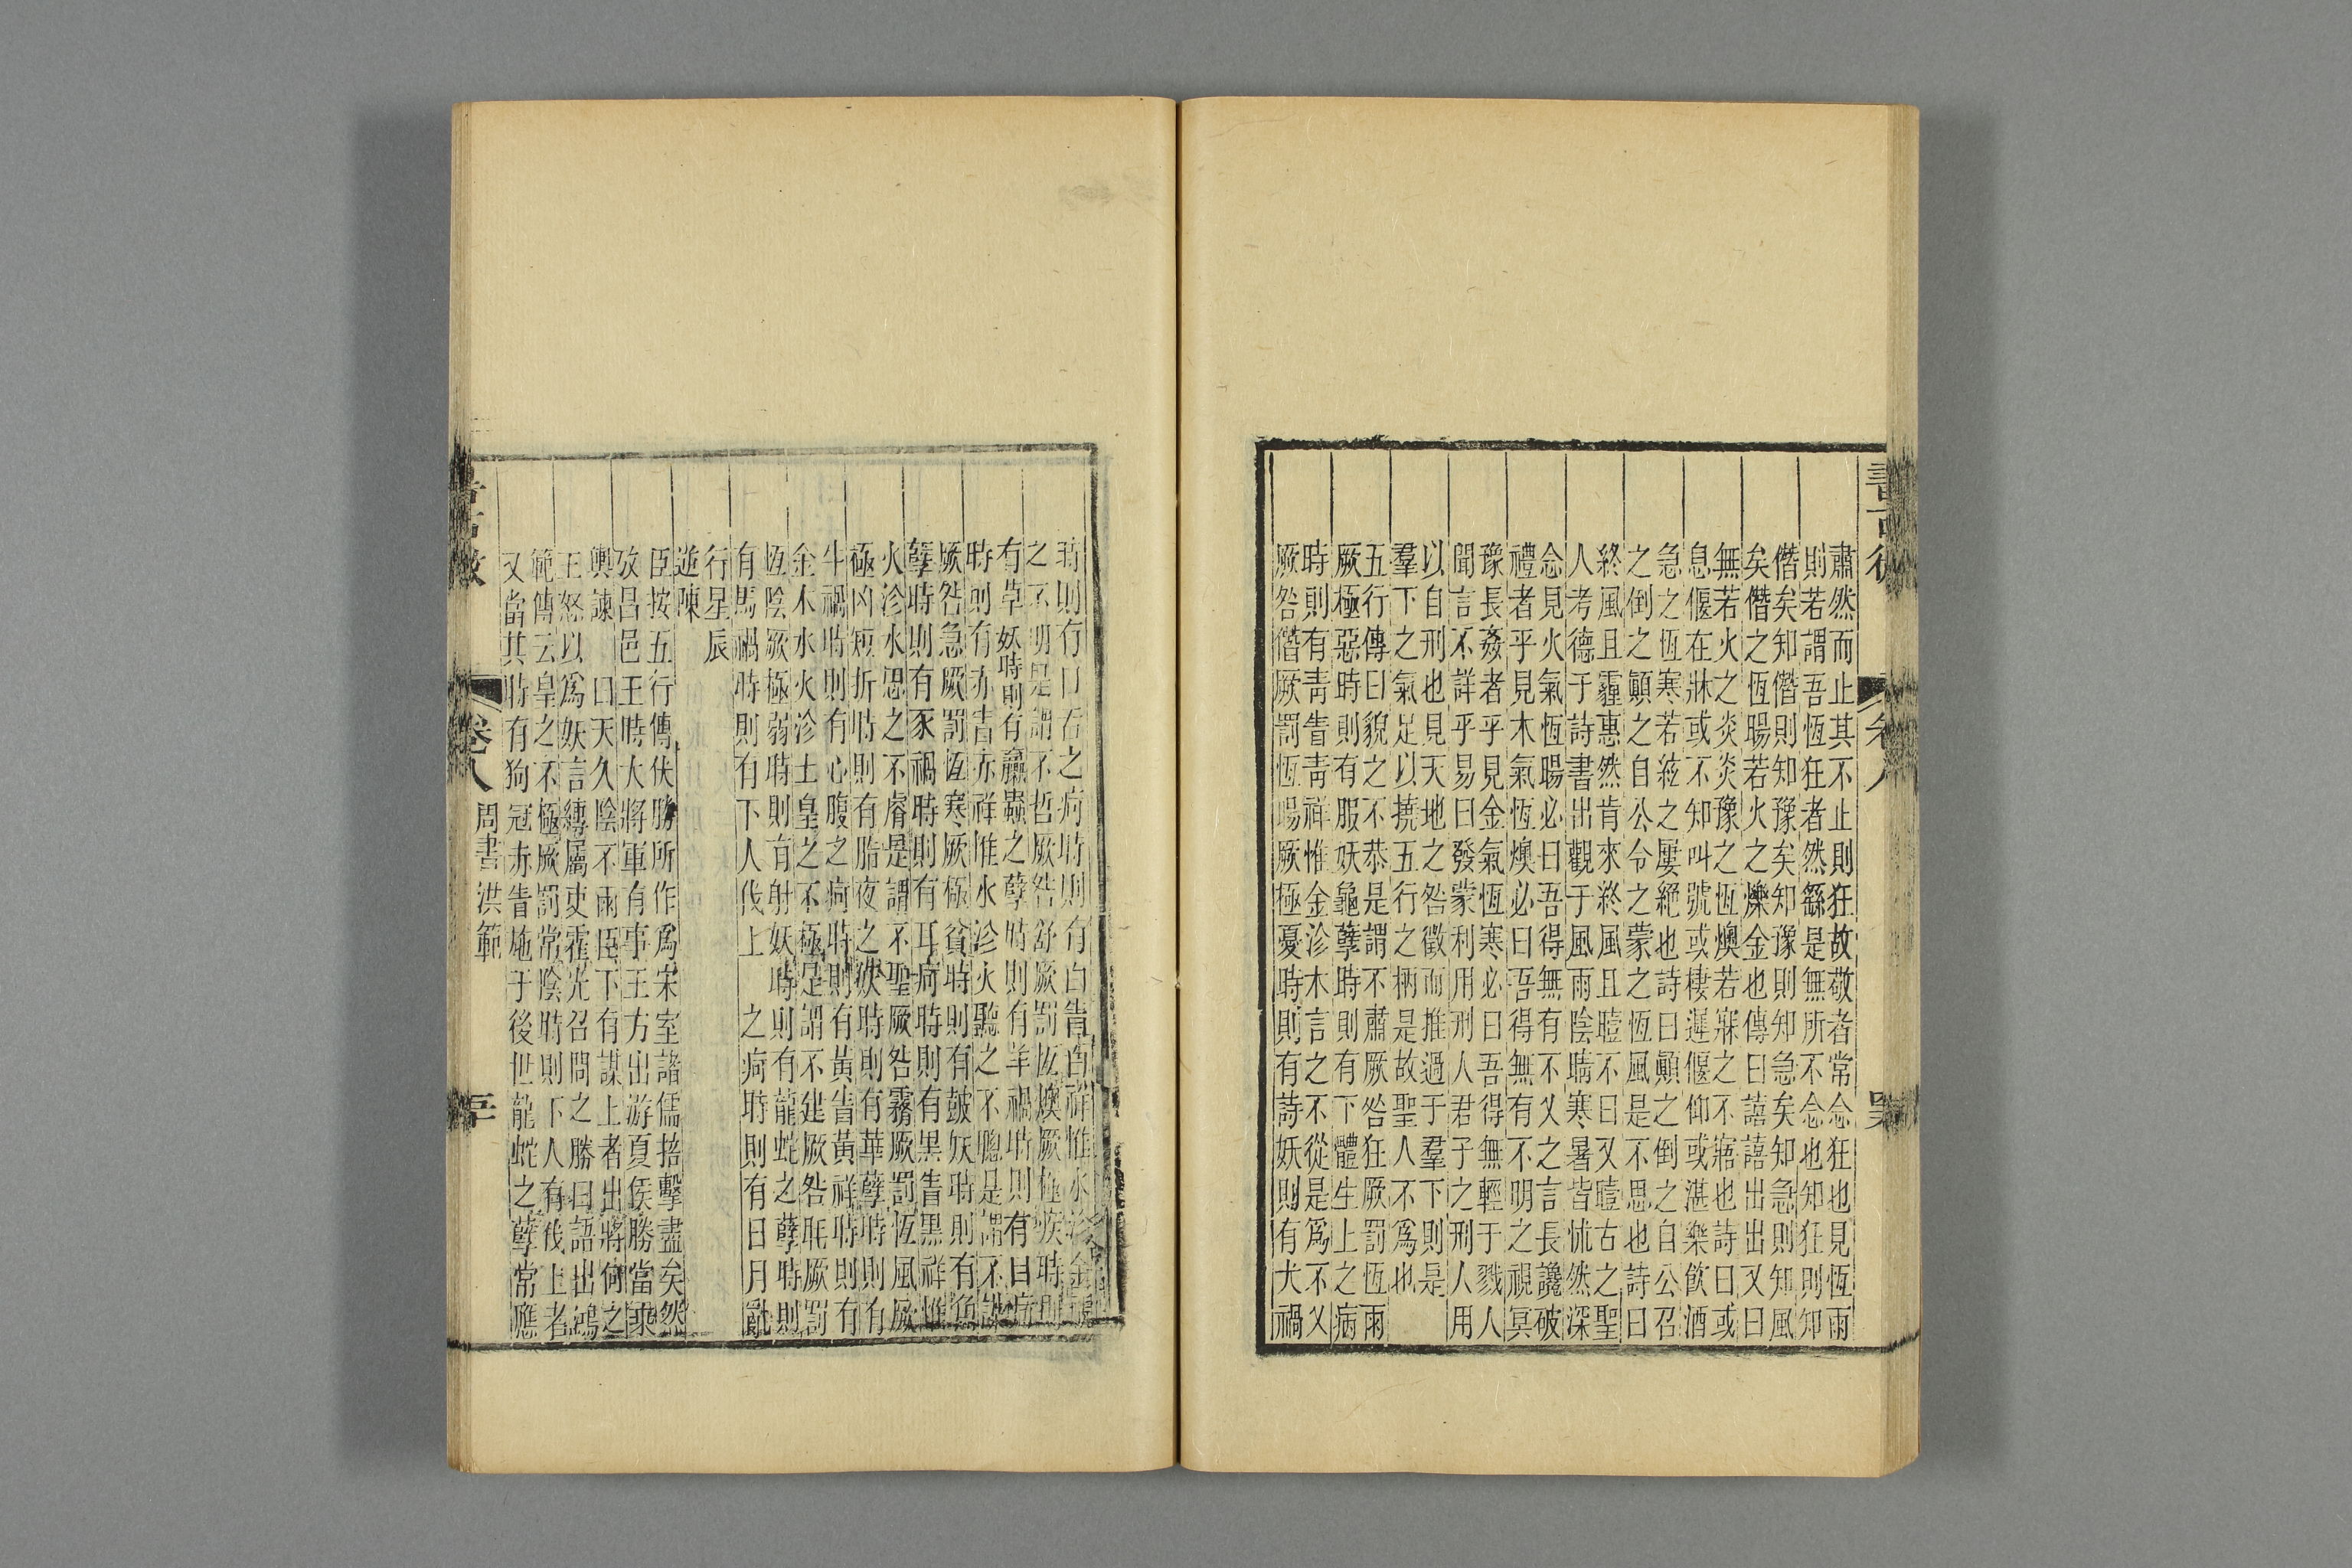 書古微　卷八
肅然而止其不止則狂故敬者常念狂也見恆雨
則若謂吾恆狂者然繇是無所不念也知狂則知
僭矣知僭則知豫矣知豫則知急矣知急則知風
矣僭之恆暘若火之爍金也傳曰譆譆出出又曰
無若火之炎炎豫之恆燠若寐之不寤也詩曰或
息偃在牀或不知叫號或棲遲偃仰或湛樂飲酒
急之恆寒若絃之屢絕也詩曰顛之倒之自公召
之倒之顛之自公令之蒙之恆風是不思也詩曰
終風且霾惠然肯來終風且曀不日又曀古之聖
人考德于詩書出觀于風雨陰晴寒暑皆怵然深
念見火氣恆暘必曰吾得無有不乂之言長讒破
禮者乎見木氣恆燠必曰吾得無有不明之視冥
豫長姦者乎見金氣恆寒必曰吾得無輕于戮人
聞言不詳乎易曰發蒙利用刑人君子之刑人用
以自刑也見天地之咎徵而推過于羣下則是
羣下之氣足以撓五行之柄是故聖人不爲也
五行傳曰貌之不恭是謂不肅厥咎狂厥罰恆雨
厥極惡時則有服妖龜孽時則有下體生上之痾
時則有靑眚靑祥惟金沴木言之不從是爲不乂
厥咎僭厥罰恆暘厥極憂時則有詩妖則有犬禍
時則有口舌之痾時則有白眚白祥惟木沴金視
之不明是謂不哲厥咎舒厥罰恆燠厥極疾時則
有草妖時則有蠃蟲之孽時則有羊禍時則有目痾
時則有赤眚赤祥惟水沴火聽之不聰是謂不謀
厥咎急厥罰恆寒厥極貧時則有鼓妖時則有魚
孽時則有豕禍時則有耳痾時則有黑眚黑祥惟
火沴水思之不睿是謂不聖厥咎霧厥罰恆風厥
極凶短折時則有脂夜之妖時則有華孽時則有
牛禍時則有心腹之痾時則有黃眚黃祥時則有
金木水火沴土皇之不極是謂不建厥咎眊厥罰
恆陰厥極弱時則有射妖時則有龍蛇之孽時則
有馬禍時則有下人伐上　之痾時則有日月亂
行星辰
逆陳
臣按五行傳伏勝所作爲宋室諸儒掊擊盡矣然
攷昌邑王時大將軍有事王方出游夏侯勝當乘
輿諫　曰天久陰不雨臣下有謀上者出將何之
王怒以爲妖言縛屬吏霍光召問之勝曰語出鴻
範傳云皇之不極厥罰常陰時則下人有伐上者
又當其時有狗冠赤眚施于後世龍蛇之孽常應
書古微　卷八　周書洪範